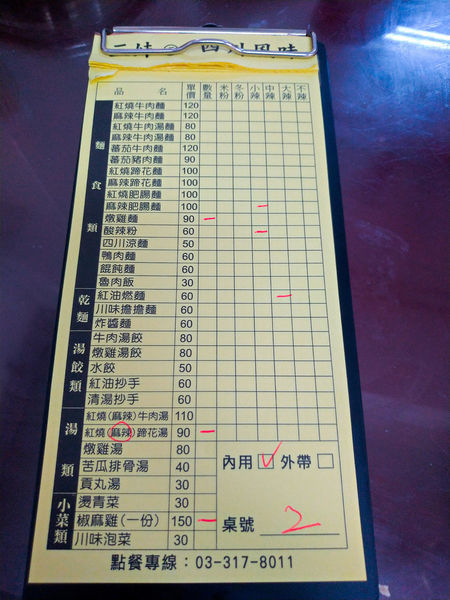 四川風味
品名 單價 數量 米粉 冬粉 小辣 中辣 大辣 不辣
麵食類
紅燒牛肉麵 120
麻辣牛肉麵 120
紅燒牛肉湯麵 80
麻辣牛肉湯麵 80
蕃茄牛肉麵 120
蕃茄豬肉麵 90
紅燒蹄花麵 100
麻辣蹄花麵 100
紅燒肥腸麵 100
麻辣肥腸麵 100
燉雞麵 90
酸辣粉 60
四川涼麵 50
鴨肉麵 60
餛飩麵 60
魯肉飯 30
乾麵
紅油燃麵 60
川味擔擔麵 60
炸醬麵 60
湯餃類
牛肉湯餃 80
燉雞湯餃 80
水餃 50
紅油抄手 60
清湯抄手 60
湯類
紅燒(麻辣)牛肉湯 110
紅燒(麻辣)蹄花湯 90
燉雞湯 80
苦瓜排骨湯 40
貢丸湯 30
小菜類
燙青菜 30
椒麻雞(一份) 150
川味泡菜 30
內用 ☑ 外帶 □
桌號 2
點餐專線：03-317-8011